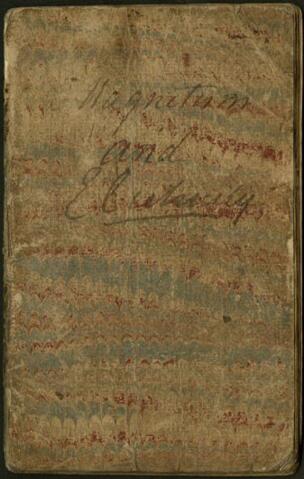 Magnetism
and
Electricity